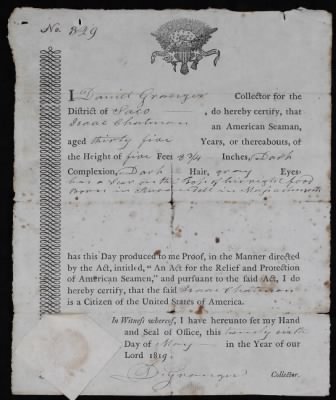 No. 829
I Daniel Granger Collector for the
District of Saco, do hereby certify, that
Isaac Chatman an American Seaman,
aged thirty five Years, or thereabouts, of
the Height of five Feet 8 3/4 Inches, Dark
Complexion, Dark Hair, gray Eyes
has a Scar on the Top of his right foot
Born in in Massachusetts
has this Day produced to me Proof, in the Manner directed
by the Act, intitled, "An Act for the Relief and Protection
of American Seamen," and pursuant to the said Act, I do
hereby certify, that the said Isaac Chatman
is a Citizen of the United States of America.
In Witness whereof, I have hereunto set my Hand
and Seal of Office, this twenty sixth
Day of May in the Year of our
Lord 1819.
D. Granger Collector.